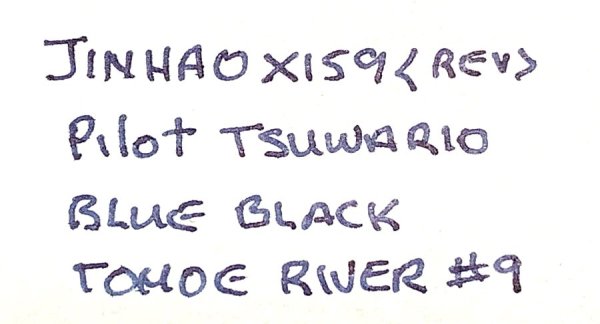 JINHAO X159 <REV>
Pilot TSUWARIO
BLUE BLACK
TOMOE RIVER #9